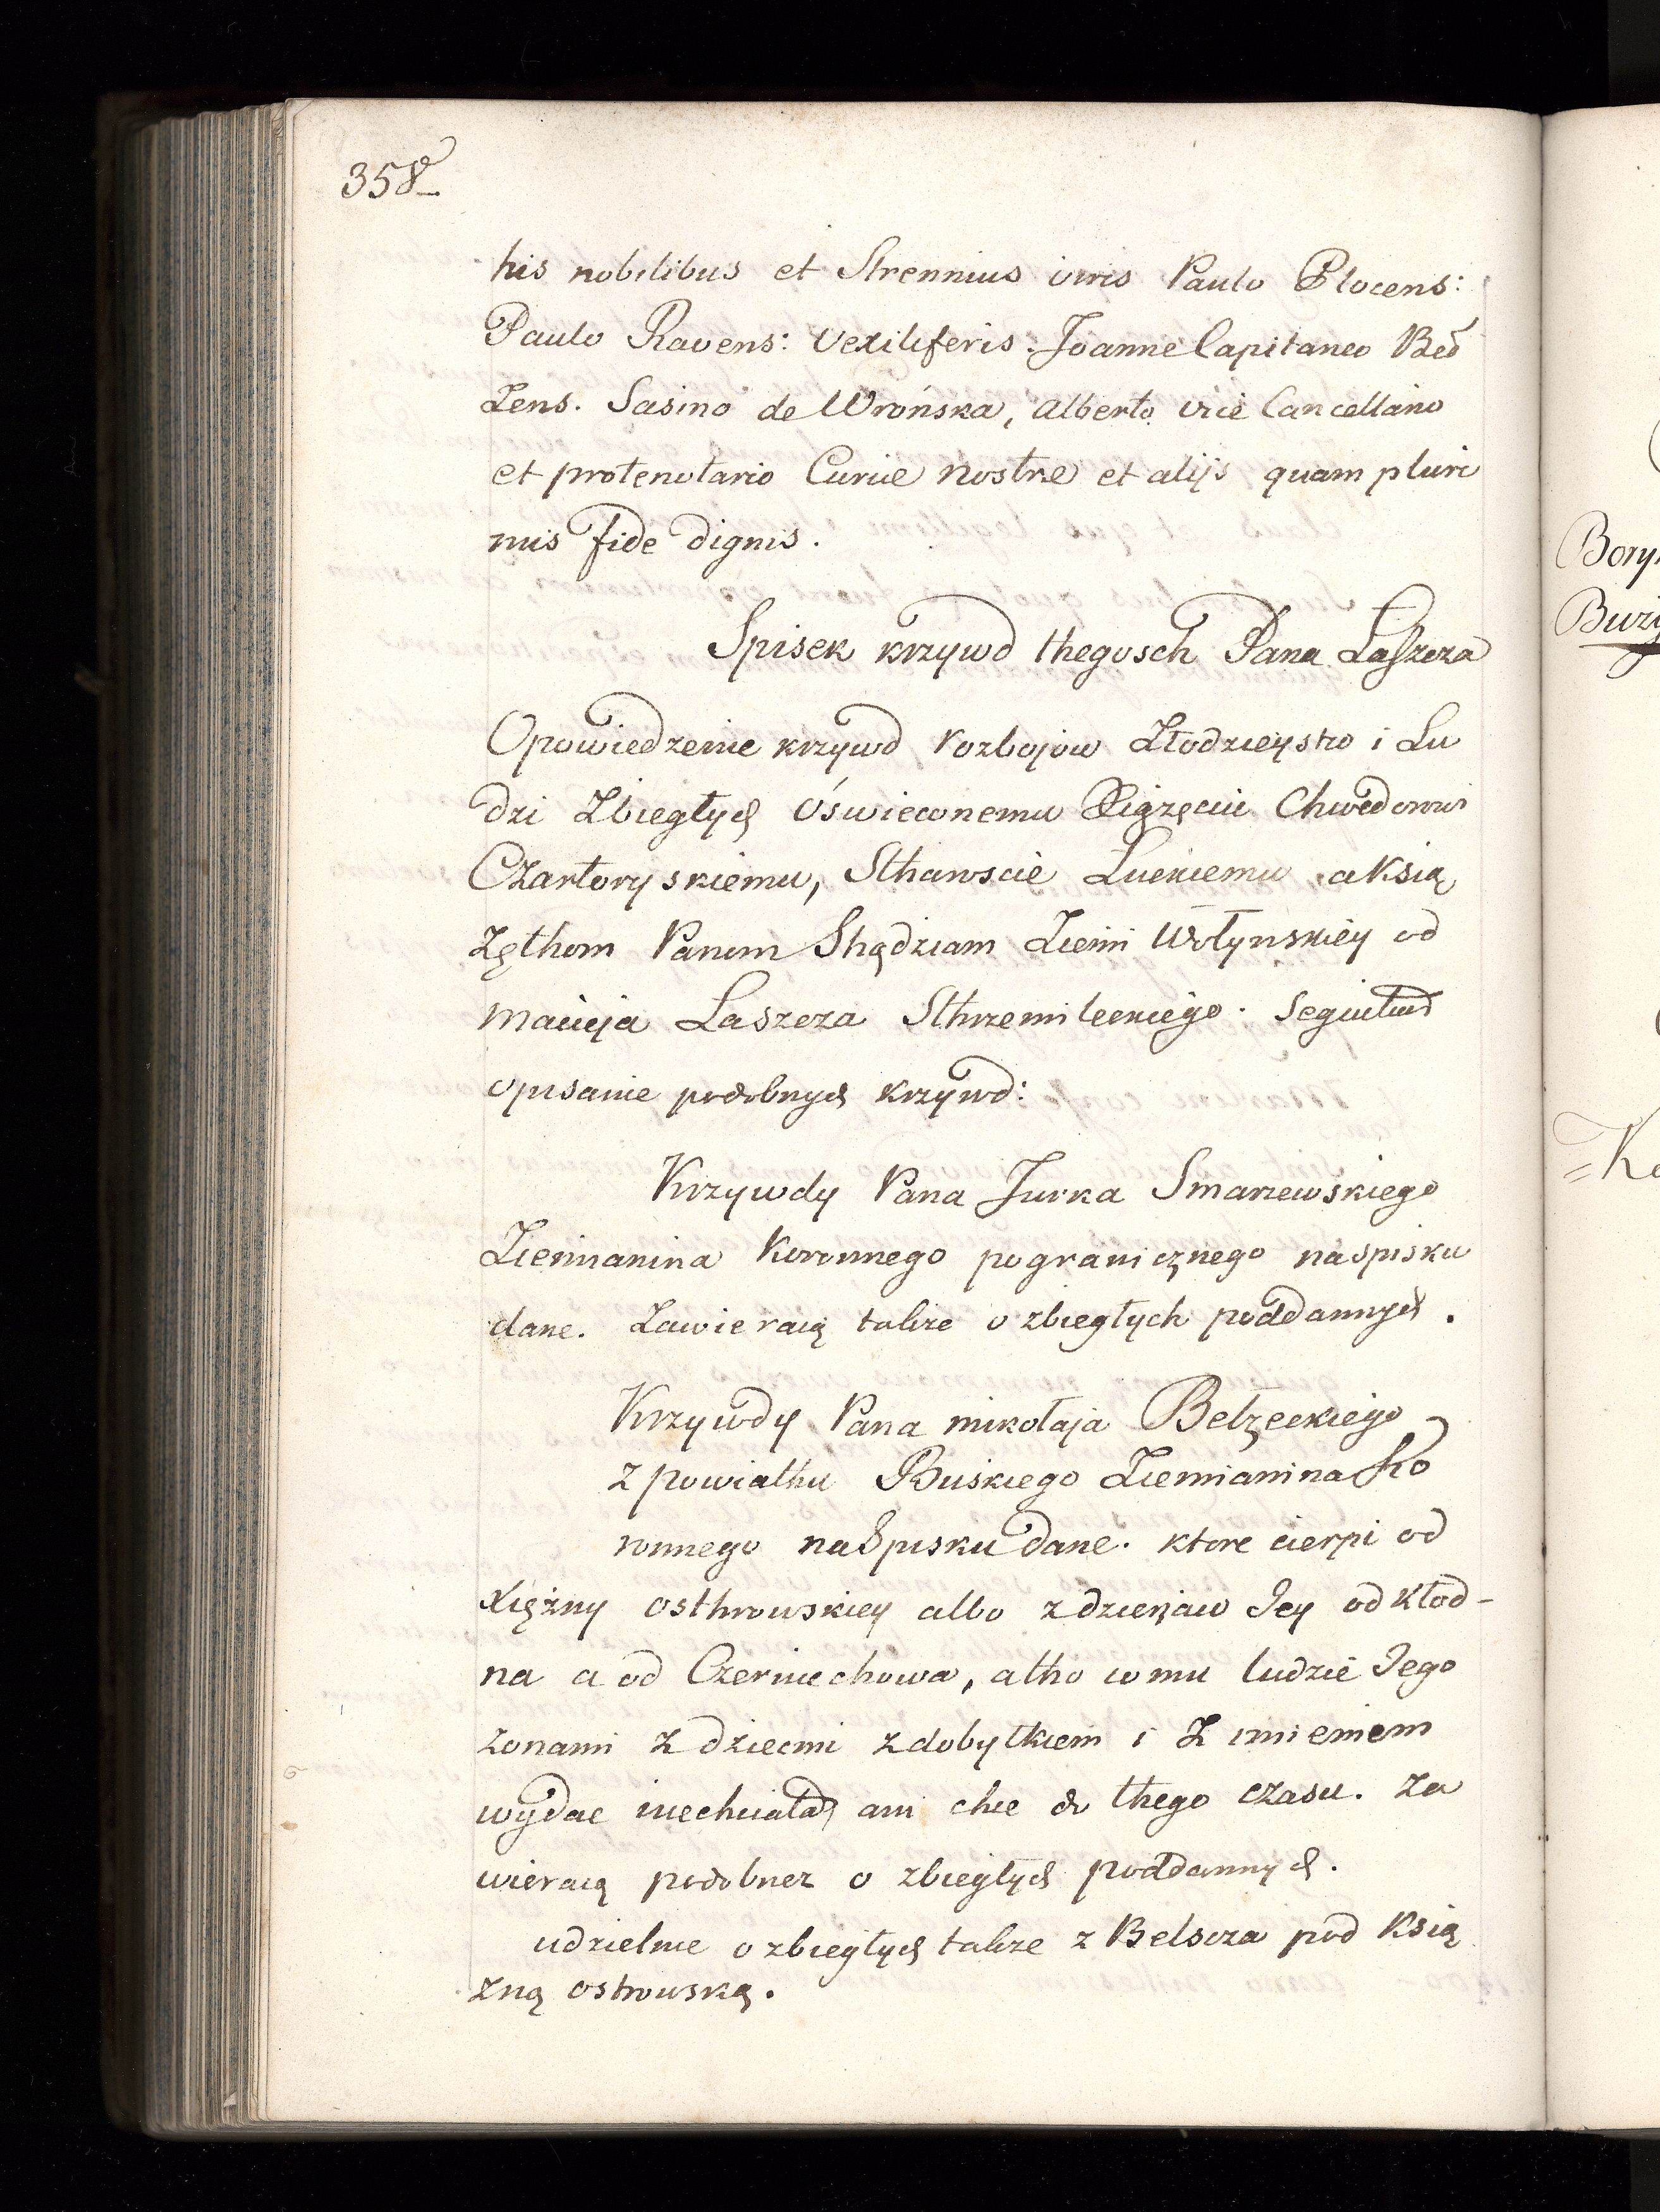 358
his nobilibus et Strennius viris Paulo Plocens:
Paulo Ravens: Vexiliferis. Joanne Capitaneo Beł
Zens. Sasino de Wrońska, Alberto vice Cancellario
et protenotario Curiæ nostræ et alijs quam pluri
mis fide dignis.
Spisek krzywd thegosch Pana Laszcza
Opowiedzenie krzywd rozbojow Złodzieystw i Lu
dzi Zbiegłych Oświeconemu Xiążęciu Chwedorowi
Czartoryskiemu, Stharoscie Luckiemu a Ksią
żęthom Panom Shędziam Ziemi Wołynskiey od
Macieja Laszcza Sthrzemileckiego. Seguitud
opisanie podobnych krzywd:
Krzywdy Pana Jurka Smarzewskiego
Ziemianina Koronnego pogranicznego na spisku
dane. Zawieraią także o zbiegłych poddannych.
Krzywdy Pana mikołaja Bełzeckiego
z powiathu Buskiego Ziemianina Ko
ronnego na Spisku dane. ktore cierpi od
Xiężny osthrowskiey albo z dzierżaw Jey od Kłod-
na a od Czerniechowa, atho co mu ludzie Jego
zonami z dziecmi z dobytkiem i z imieniem
wydac niechciała ani chce do thego czasu. Za
wieraią podobnez o zbiegłych poddannych.
udzielnie o zbiegłych także z Belscza pod Ksią
żną ostrowską.
Bory
Buży